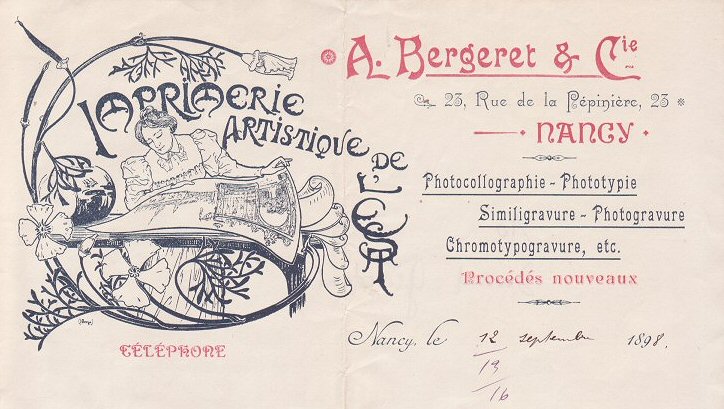 Imprimerie
Artistique
de
l'Est
Téléphone
A. Bergeret & Cie
23, Rue de la Pépinière, 23
Nancy
Photocollographie - Phototypie
Similigravure - Photogravure
Chromotypogravure, etc.
Procédés nouveaux
Nancy, le 12 septembre 1898.
13
16